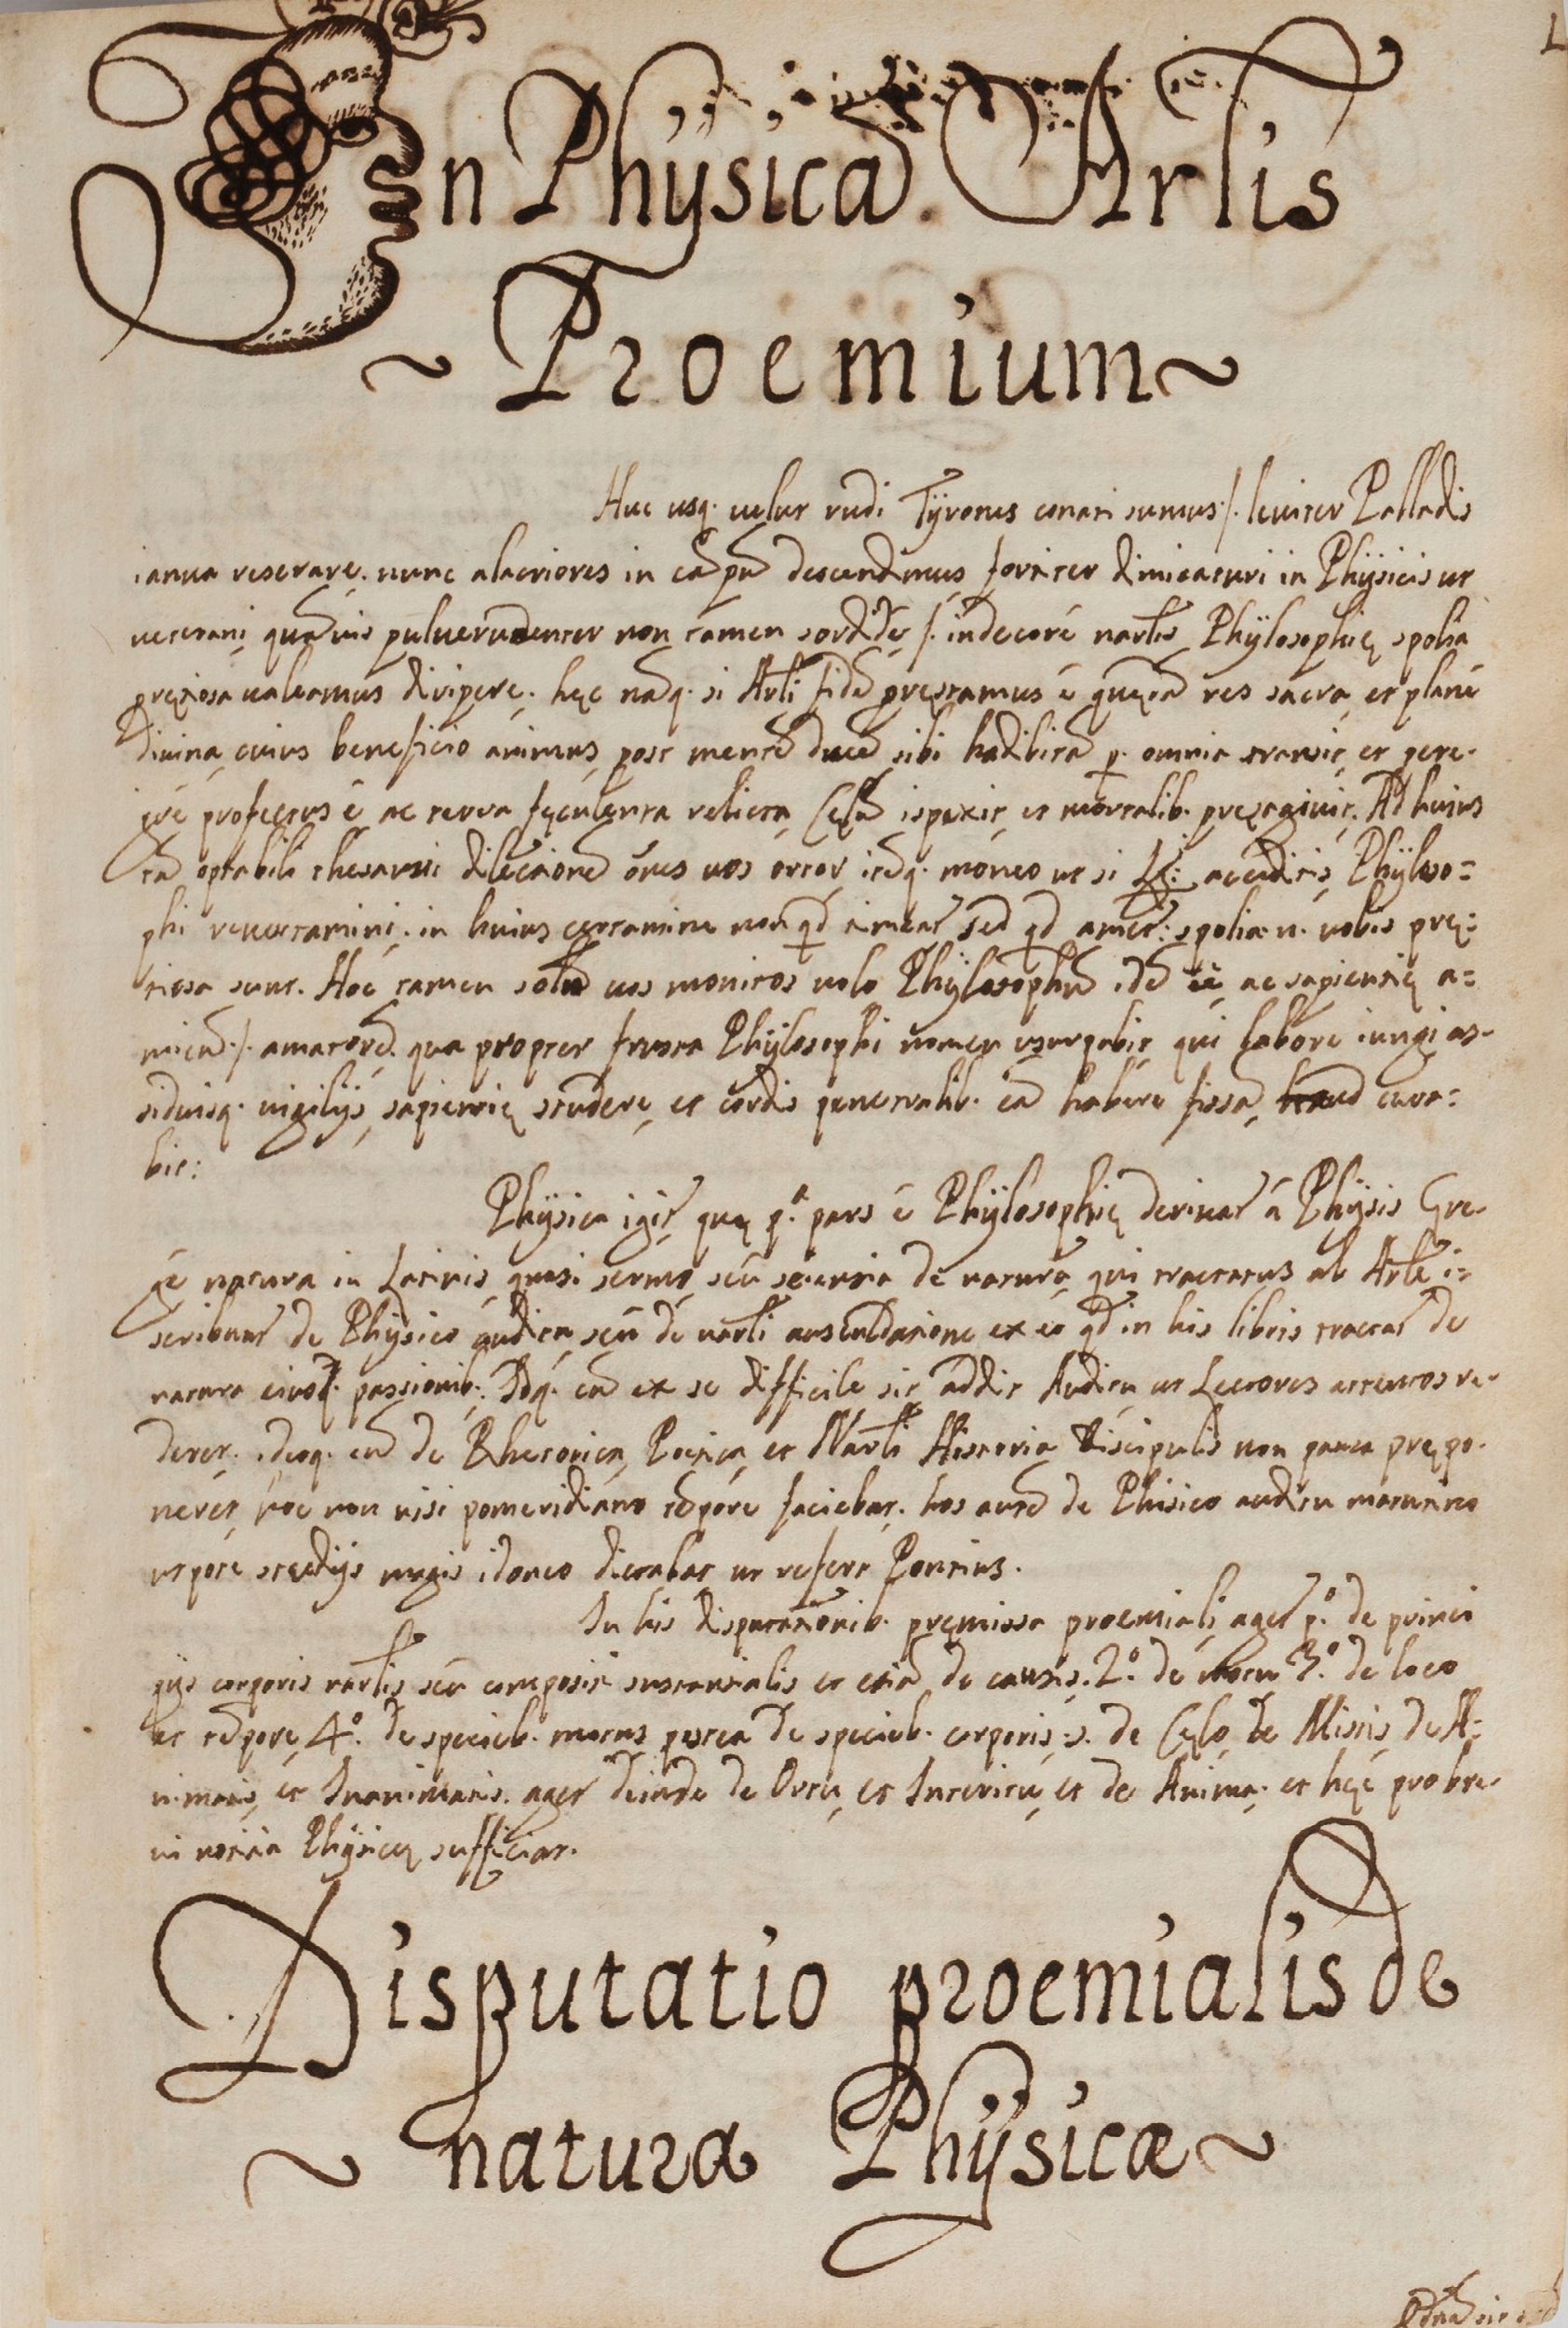 In Physica Arlis
Proemium
Huc usq. velut rudi Tÿrones conati sumus /. leviter Palladis
ianua reserare, nunc alacriores in eã pũ descendimus, fortiter dimicaturi in Phÿsicis ut
veterani, quãvis pulverudenter non tamen sordide, /. indecore nãrlis Phÿlosophię spolia
pręziosa valeamus diripere. hęc nãq. si Arli fidẽ pręstamus é res sacra, et planè
divina, cuius beneficio animus, post mentẽ ducẽ sibi p. omnia transit, et pere-
grè profectus é ac terra fęculenta relicta, Cęlũ ispexit, et mortalib. pręsagivit. Ad huius
tã optabili thesauri dilectionẽ õnes vos ortor, itẽq. moneo ut si acceditis, Phÿloso=
phi certamine non qd timeat sed qd amet: spolia n. vobis prę=
tiosa sunt. Hoc tamen solũ vos monitos volo Phÿlosophũ idẽ eé ac sapientię a=
micũ /. amatorẽ. qua propter frustra Phÿlosophi nomen usurpabit, qui labore iungi as-
siduisq. vigilijs, sapientię studere, et cordis penetralib. eã habere fissã, haud cura=
bit:
Phÿsica igir, quę p.ª pars é Phÿlosophię derivat á Phÿsis Gre-
cè natura in Latinis, quasi sermo, seu scientia de natura, qui tractatus ab Arle i=
scribunt de Phÿsico auditu, seu de narli auscultatione ex eo qd in his libris tractat de
natura eiusq. passionib. Idq. cũ ex se difficile sit addit Auditu ut Lectores attentos re-
deret. ideoq. cũ de Rhetorica, Poetica, et Narli Historia discipulis non pauca prępo-
neret, hoc non nisi pomeridiano tẽpore faciebat. hos autẽ de Phisico auditu matutino
tẽpore studijs magis idoneo dictabat ut refert Pontius.
In his disputationib. pręmissa proemiali, aget p.º de princi
pijs corporis nãrlis, seu compositi sustantialis et etiã de causis. 2.º de motu 3.º de loco
et tẽpore, 4.º de specieb. motus postea de specieb. corporis .s. de Cęlo, de Mistis, de A=
nimatis, et Inanimatis. aget deinde de Ortu, et Interitu, et de Anima. et hęc pro bre-
vi notitia Phÿsicę sufficiat.
Disputatio proemialis de
natura Phÿsicæ